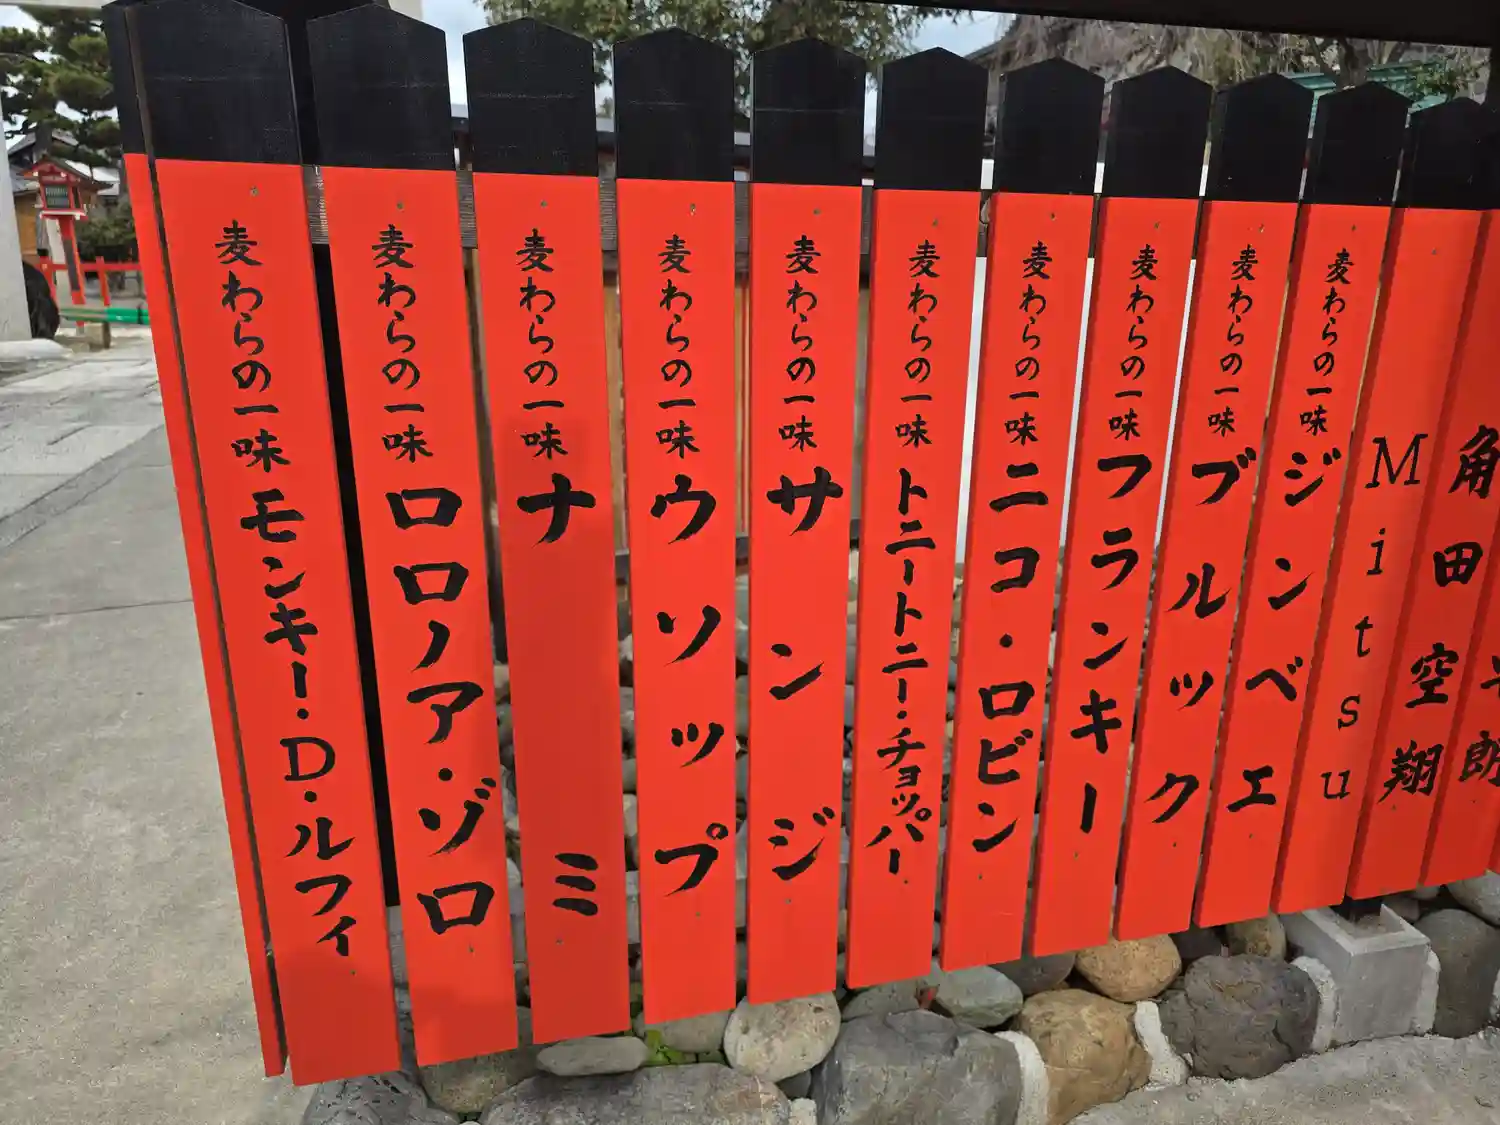 麦わらの一味 モンキー・D・ルフィ
麦わらの一味 ロロノア・ゾロ
麦わらの一味 ナミ
麦わらの一味 ウソップ
麦わらの一味 サンジ
麦わらの一味 トニートニー・チョッパー
麦わらの一味 ニコ・ロビン
麦わらの一味 フランキー
麦わらの一味 ブルック
麦わらの一味 ジンベエ
Mitsu
角田空翔
朗